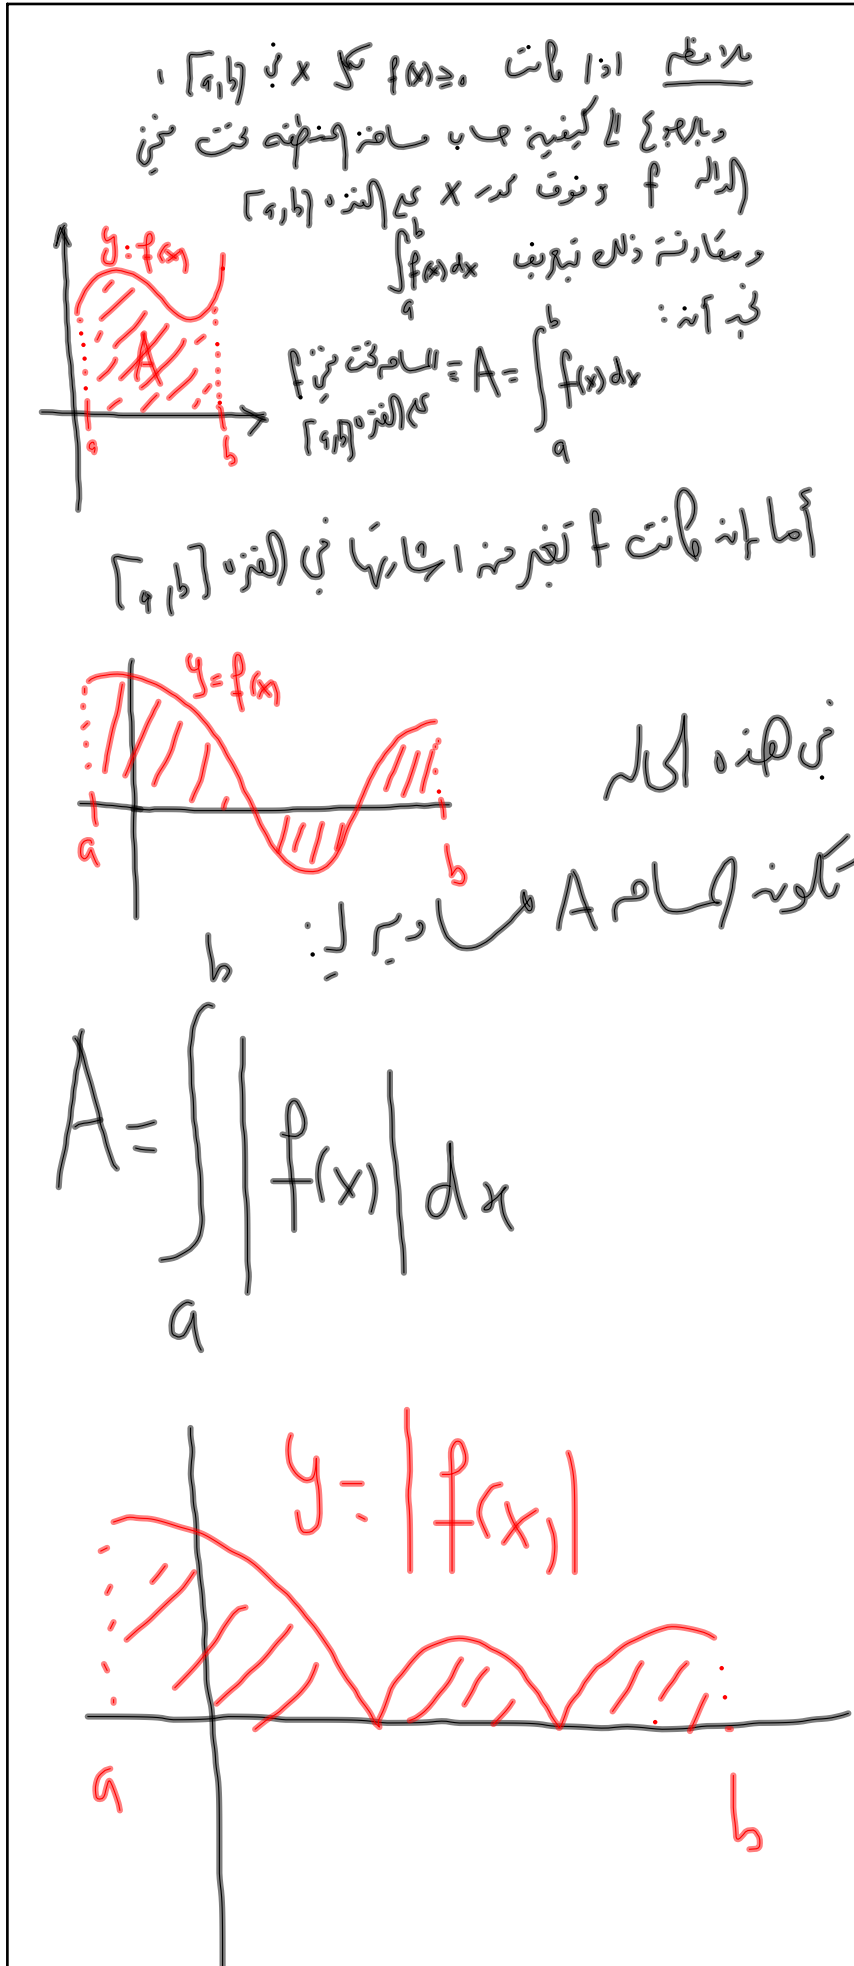 ملاحظة اذا كانت f(x)≥0 لكل x في [a,b] ،
وبالرجوع الى كيفية حساب مساحة المنطقة تحت منحنى
الدالة f وفوق محور x على الفترة [a,b]
ومقارنة ذلك بتعريف ∫_a^b f(x)dx
نجد أن:
y=f(x)
A
a
b
المساحة تحت منحنى f على الفترة [a,b] = A = ∫_a^b f(x)dx
أما إن كانت f تغير من اشارتها في الفترة [a,b]
y=f(x)
a
b
في هذه الحالة
تكون المساحة A مساوية لـ:
A = ∫_a^b |f(x)| dx
y=|f(x)|
a
b